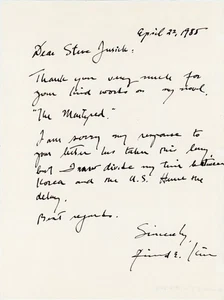 April 22, 1985
Dear Steve
Thank you very much for
your kind words on my novel,
"The Martyred."
I am sorry my response to
your letter has taken this long,
but I now divide my time between
Korea and the U.S. Hence the
delay.
Best regards.
Sincerely,
Richard E. Kim